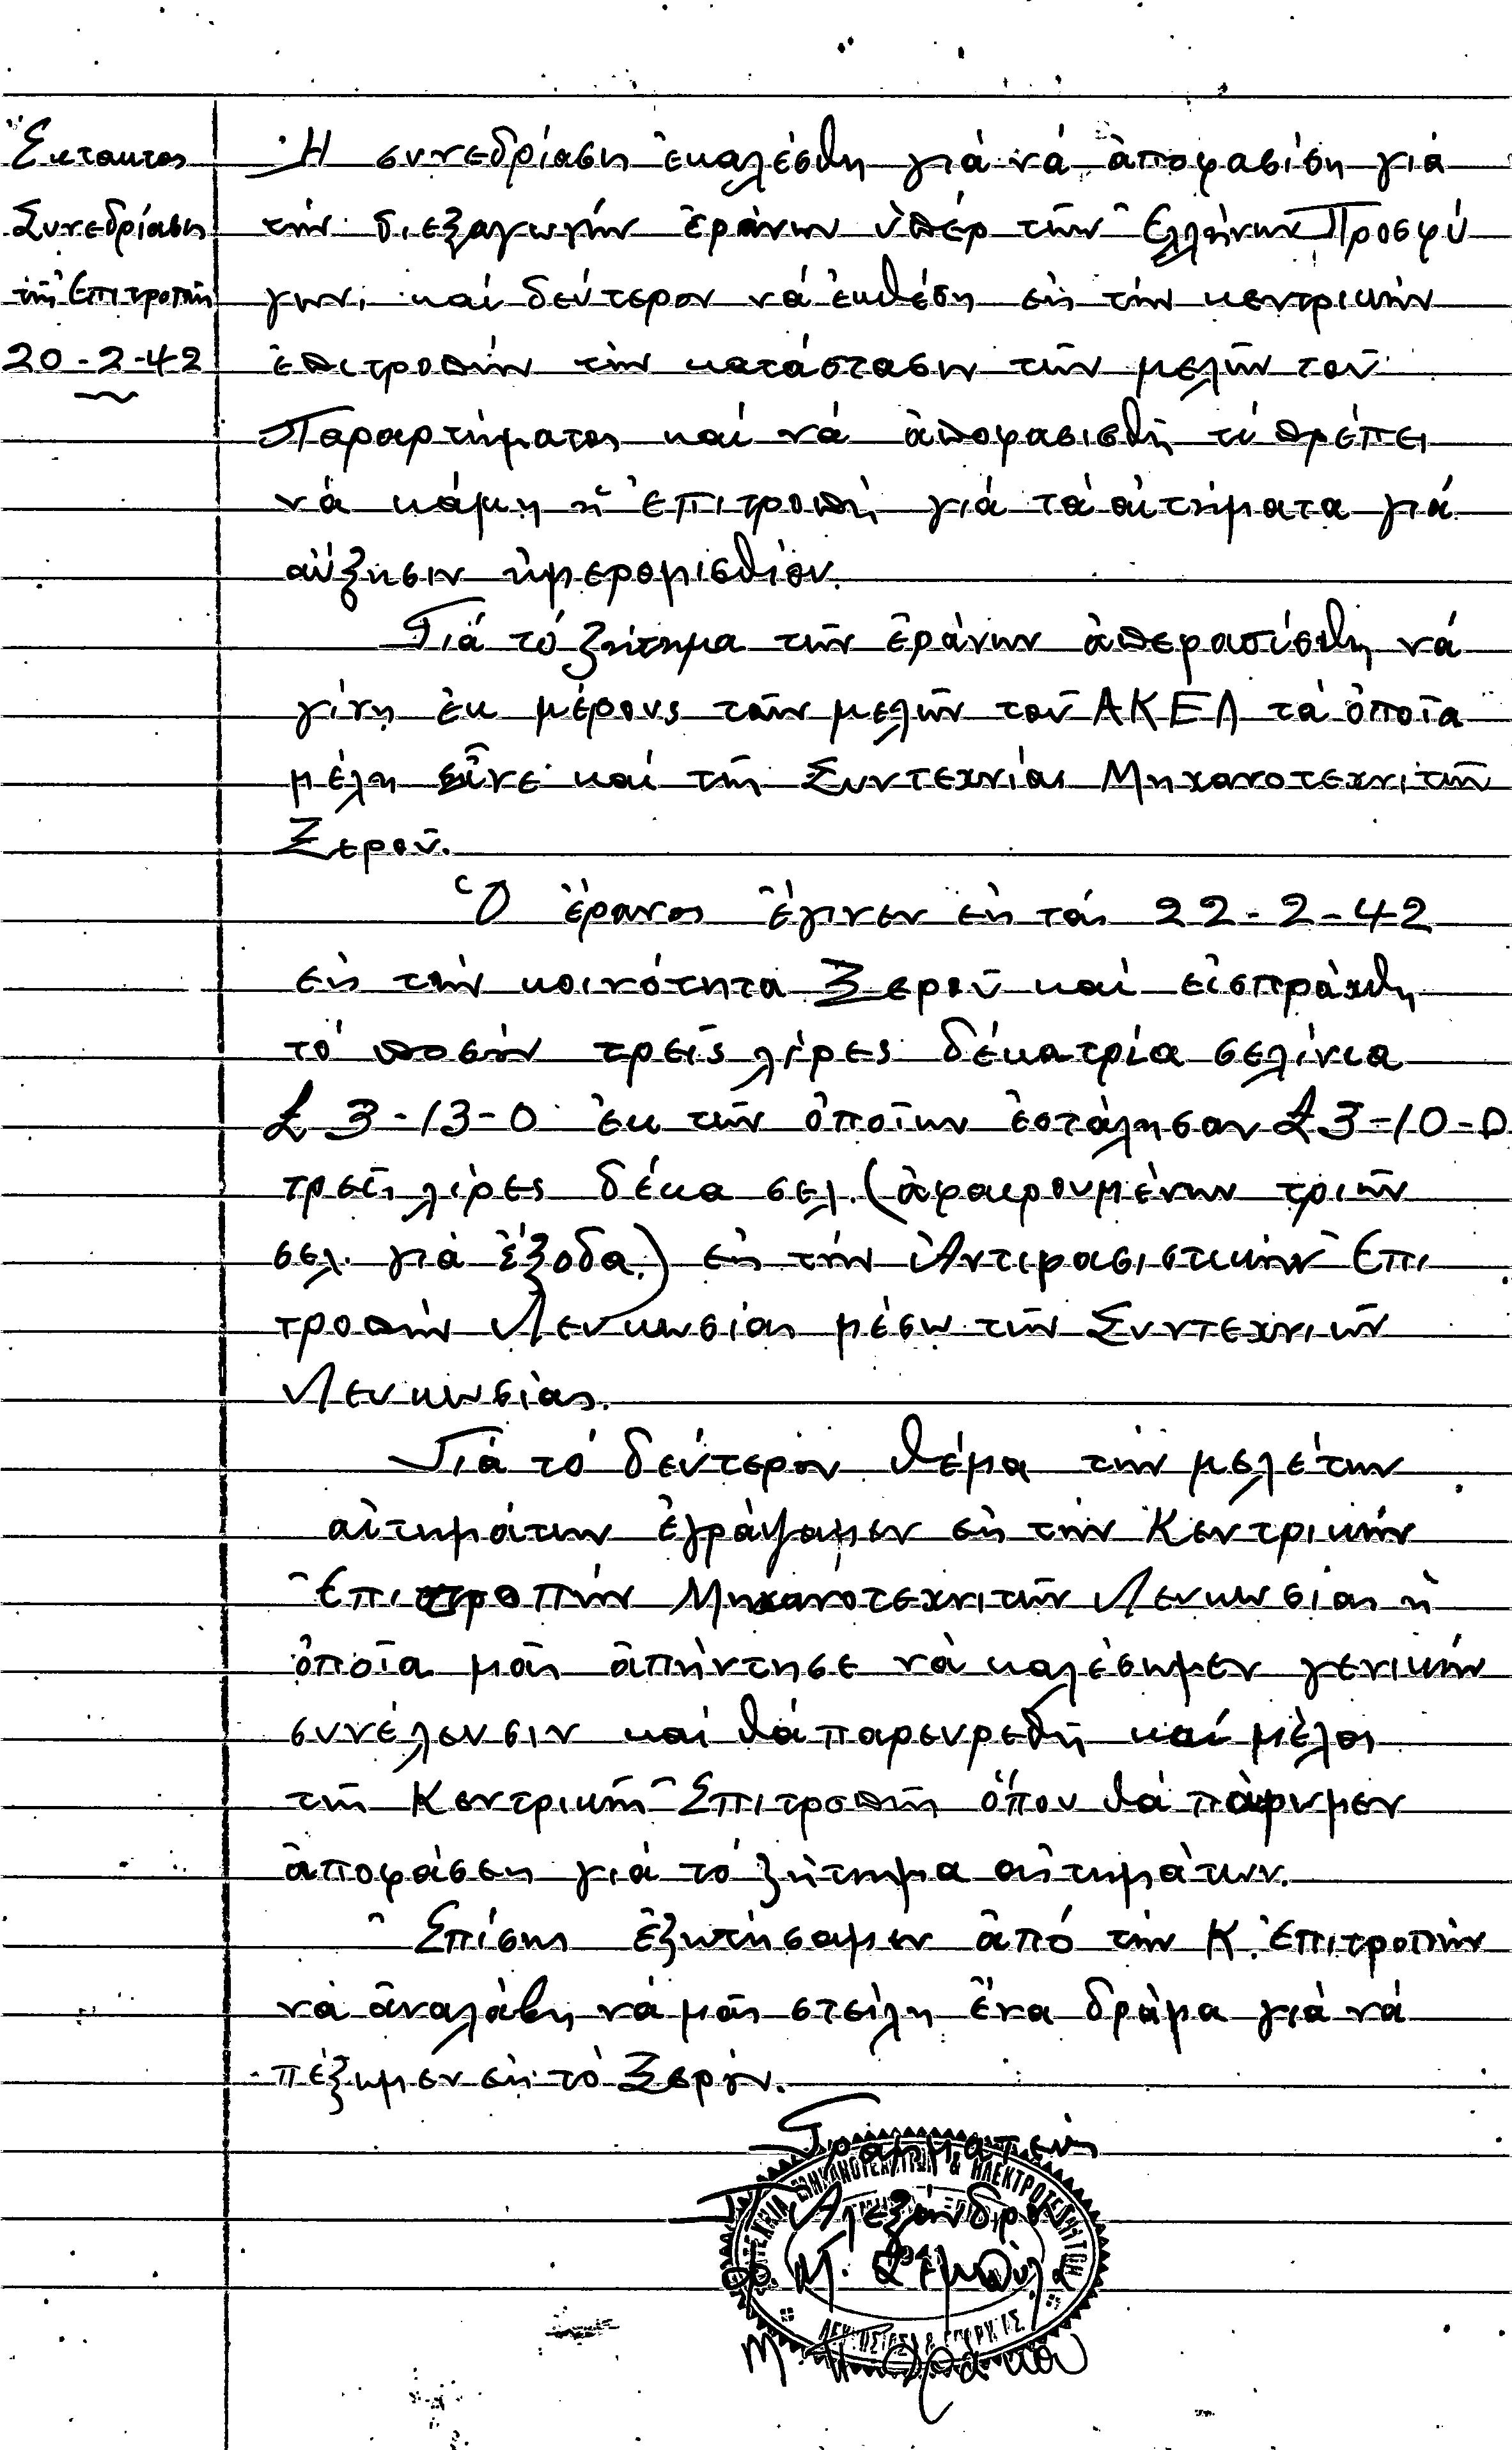 Ἔκτακτος
Συνεδρίασις
τῆς Ἐπιτροπῆς
20-2-42
Ἡ συνεδρίασις ἐκαλέσθη γιά νά ἀποφασίση γιά
τήν διεξαγωγήν ἐράνων ὑπέρ τῶν Ἑλλήνων Προσφύ
γων, καί δεύτερον νά ἐκθέση εἰς τήν κεντρικήν
ἐπιτροπήν τήν κατάστασιν τῶν μελῶν τοῦ
Παραρτήματος καί νά ἀποφασισθῆ τί πρέπει
νά κάμη ἡ ἐπιτροπή γιά τά αἰτήματα γιά
αὔξησιν ἡμερομισθίον.
Γιά τό ζήτημα τῶν ἐράνων ἀπεφασίσθη νά
γίνη ἐκ μέρους τῶν μελῶν τοῦ ΑΚΕΛ τά ὁποῖα
μέλη εἶνε καί τῆς Συντεχνίας Μηχανοτεχνιτῶν
Ξεροῦ.
Ὁ ἔρανος ἔγινεν εἰς τάς 22-2-42
εἰς τήν κοινότητα Ξεροῦ καί εἰσπράχθη
τό ποσόν τρεῖς λίρες δέκατρία σελίνια
£ 3-13-0 ἐκ τῶν ὁποίων ἐστάλησαν £3-10-0
τρεῖς λίρες δέκα σελ. (ἀφαιρουμένων τριῶν
σελ. γιά ἔξοδα.) εἰς τήν Ἀντιφασιστικήν Ἐπι
τροπήν Λευκωσίας μέσω τῶν Συντεχνιῶν
Λευκωσίας.
Γιά τό δεύτερον θέμα τήν μελέτην
αἰτημάτων ἐγράψαμεν εἰς τήν Κεντρικήν
Ἐπιτροπήν Μηχανοτεχνιτῶν Λευκωσίας ἡ
ὁποῖα μᾶς ἀπήντησε νά καλέσωμεν γενικήν
συνέλευσιν καί θά παρευρεθῆ καί μέλος
τῆς Κεντρικῆς Ἐπιτροπῆς ὅπου θά πάρωμεν
ἀποφάσεις γιά τό ζήτημα αἰτημάτων.
Ἐπίσης ἐζητήσαμεν ἀπό τήν Κ. Ἐπιτροπήν
νά ἀναλάβη νά μᾶς στείλη ἕνα δράμα γιά νά
πέξωμεν εἰς τό Ξερόν.
Γραμματεύς
Π. Ἀλεξάνδρου